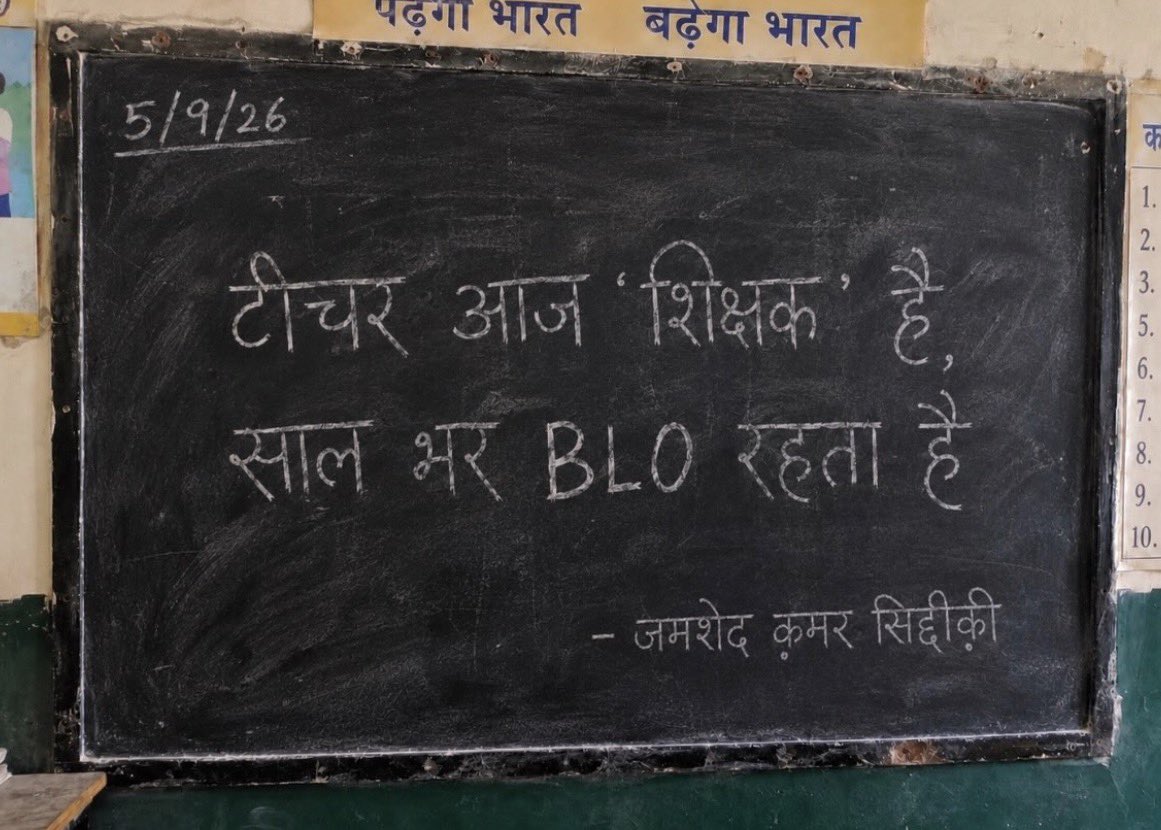 पढ़ेगा भारत बढ़ेगा भारत
5/9/26
टीचर आज ‘शिक्षक’ है,
साल भर BLO रहता है
- जमशेद क़मर सिद्दीक़ी
1.
2.
3.
5.
6.
7.
8.
9.
10.